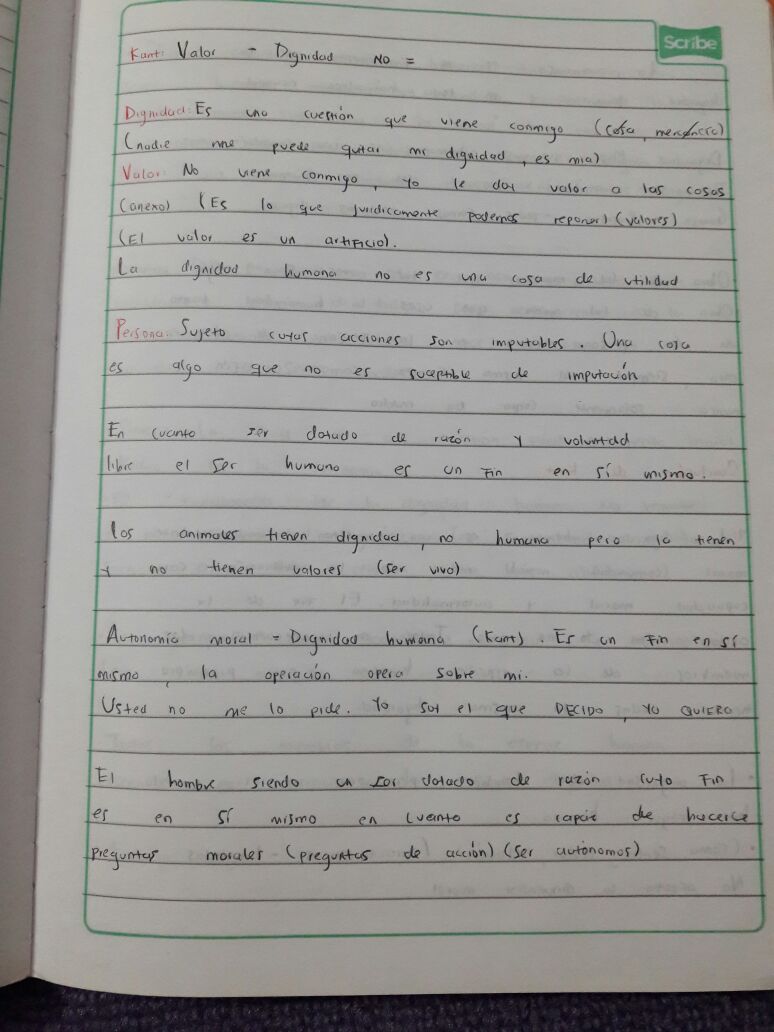 Scribe
Kant: Valor - Dignidad NO =
Dignidad: Es una cuestión que viene conmigo (cosa,
(nadie me puede quitar mi dignidad, es mia)
Valor: No viene conmigo, Yo le doy valor a las cosas
(anexo) (Es lo que juridicamente podemos reponer) (valores)
(El valor es un artificio).
La dignidad humana no es una cosa de utilidad
Persona: Sujeto cuyas acciones son imputables. Una cosa
es algo que no es suceptible de imputación
En cuanto ser dotado de razón y voluntad
libre el ser humano es un fin en sí mismo.
Los animales tienen dignidad, no humana pero la tienen
y no tienen valores (ser vivo)
Autonomía moral = Dignidad humana (Kant). Es un fin en sí
mismo, la operación opera sobre mi.
Usted no me lo pide. Yo soy el que DECIDO, YO QUIERO
El hombre siendo un ser dotado de razón cuyo fin
es en sí mismo en cuanto es capaz de hacerce
preguntas morales - (preguntas de acción) (ser autónomos)